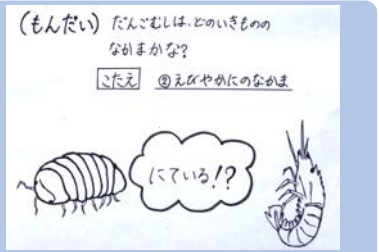 (もんだい) だんごむしは、どのいきものの
なかまかな?
こたえ ②えびやかにのなかま
にている!?